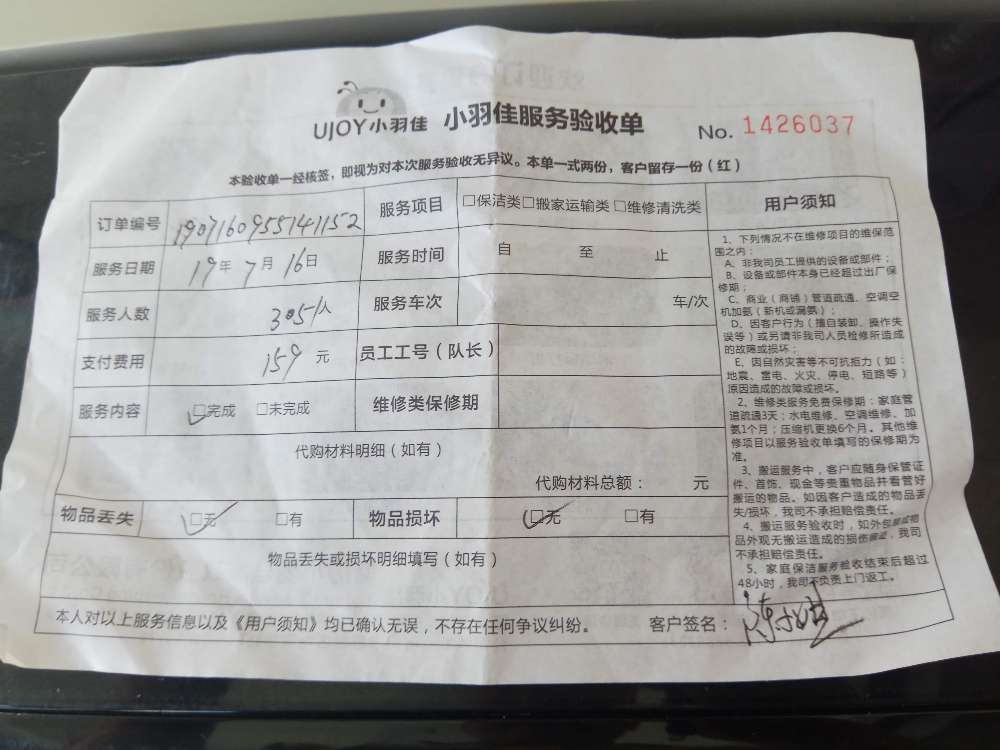 UJOY小羽佳 小羽佳服务验收单 No. 1426037
本验收单一经核签，即视为对本次服务验收无异议。本单一式两份，客户留存一份（红）
订单编号 1907160955141152 服务项目 □保洁类□搬家运输类□维修清洗类
服务日期 19年7月16日 服务时间 自 至 止
服务人数 服务车次 车/次
支付费用 159元 员工工号（队长）
服务内容 □完成 □未完成 维修类保修期
代购材料明细（如有）
代购材料总额： 元
物品丢失 □无 □有 物品损坏 □无 □有
物品丢失或损坏明细填写（如有）
本人对以上服务信息以及《用户须知》均已确认无误，不存在任何争议纠纷。 客户签名：
用户须知
1、下列情况不在维修项目的维保范
围之内：
A、非我司员工提供的设备或部件；
B、设备或部件本身已经超过出厂保
修期；
C、商业（商铺）管道疏通、空调空
机加氨（新机或漏氨）；
D、因客户行为（擅自装卸、操作失
误等）或另请非我司人员检修所造成
的故障或损坏；
E、因自然灾害等不可抗拒力（如：
地震、雷电、火灾、停电、短路等）
原因造成的故障或损坏。
2、维修类服务免费保修期：家庭管
道疏通3天；水电维修、空调维修、加
氨1个月；压缩机更换6个月。其他维
修项目以服务验收单填写的保修期为
准。
3、搬运服务中，客户应随身保管证
件、首饰、现金等贵重物品并看管好
搬运的物品。如因客户造成的物品丢
失/损坏，我司不承担赔偿责任。
4、搬运服务验收时，如外包装或物
品外观无搬运造成的损伤痕迹，我司
不承担赔偿责任。
5、家庭保洁服务验收结束后超过
48小时，我司不负责上门返工。